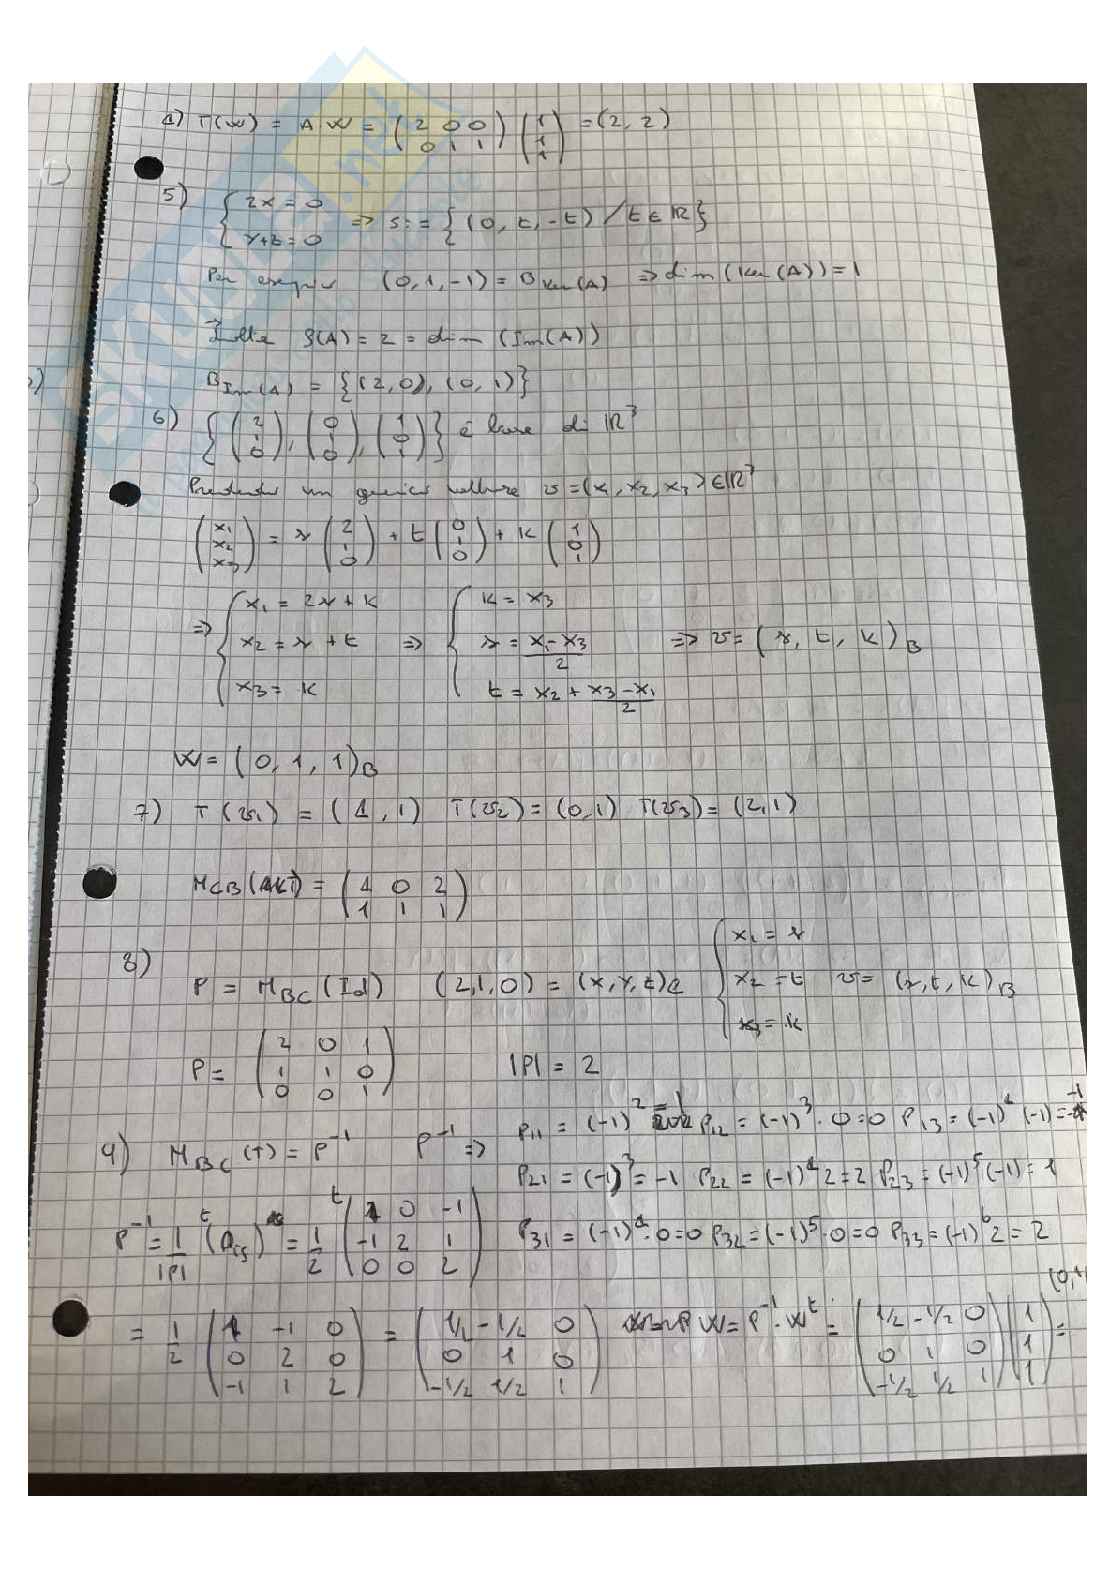 4) T(w) = A W = (2 0 0 / 0 1 1) (1 / 1 / 1) = (2, 2)
5) { 2x = 0 / y+z = 0 => S: = {(0, t, -t) / t ∈ ℝ}
Per esempio (0, 1, -1) = B Ker(A) => dim (Ker (A)) = 1
Inoltre ρ(A) = 2 = dim (Im(A))
B Im(A) = {(2,0), (0,1)}
6) {(2 / 1 / 0), (0 / 1 / 0), (1 / 0 / 1)} è base di ℝ³
Prendendo un generico vettore v = (x₁, x₂, x₃) ∈ ℝ³
(x₁ / x₂ / x₃) = r (2 / 1 / 0) + t (0 / 1 / 0) + k (1 / 0 / 1)
=> { x₁ = 2r + k / x₂ = r + t / x₃ = k => { k = x₃ / r = (x₁ - x₃)/2 / t = x₂ + (x₃ - x₁)/2 => v = (r, t, k)B
W = (0, 1, 1)B
7) T(v₁) = (4, 1) T(v₂) = (0, 1) T(v₃) = (2, 1)
M CB (T) = (4 0 2 / 1 1 1)
8) P = M BC (Id) (2,1,0) = (x, y, z)C { x₁ = r / x₂ = t / x₃ = k v = (r, t, k)B
P = (2 0 1 / 1 1 0 / 0 0 1) |P| = 2
9) M BC (T) = P⁻¹ P⁻¹ => P₁₁ = (-1)² = 1 P₁₂ = (-1)³ · 0 = 0 P₁₃ = (-1)⁴ (-1) = -1
P₂₁ = (-1)³ = -1 P₂₂ = (-1)⁴ 2 = 2 P₂₃ = (-1)⁵ (-1) = 1
P₃₁ = (-1)⁴ · 0 = 0 P₃₂ = (-1)⁵ · 0 = 0 P₃₃ = (-1)⁶ 2 = 2
P⁻¹ = 1/|P| ᵗ( ) = 1/2 ᵗ(1 0 -1 / -1 2 1 / 0 0 2)
= 1/2 (1 -1 0 / 0 2 0 / -1 1 2) = (1/2 -1/2 0 / 0 1 0 / -1/2 1/2 1) W = P⁻¹ · Wᵗ = (1/2 -1/2 0 / 0 1 0 / -1/2 1/2 1) (1 / 1 / 1) =